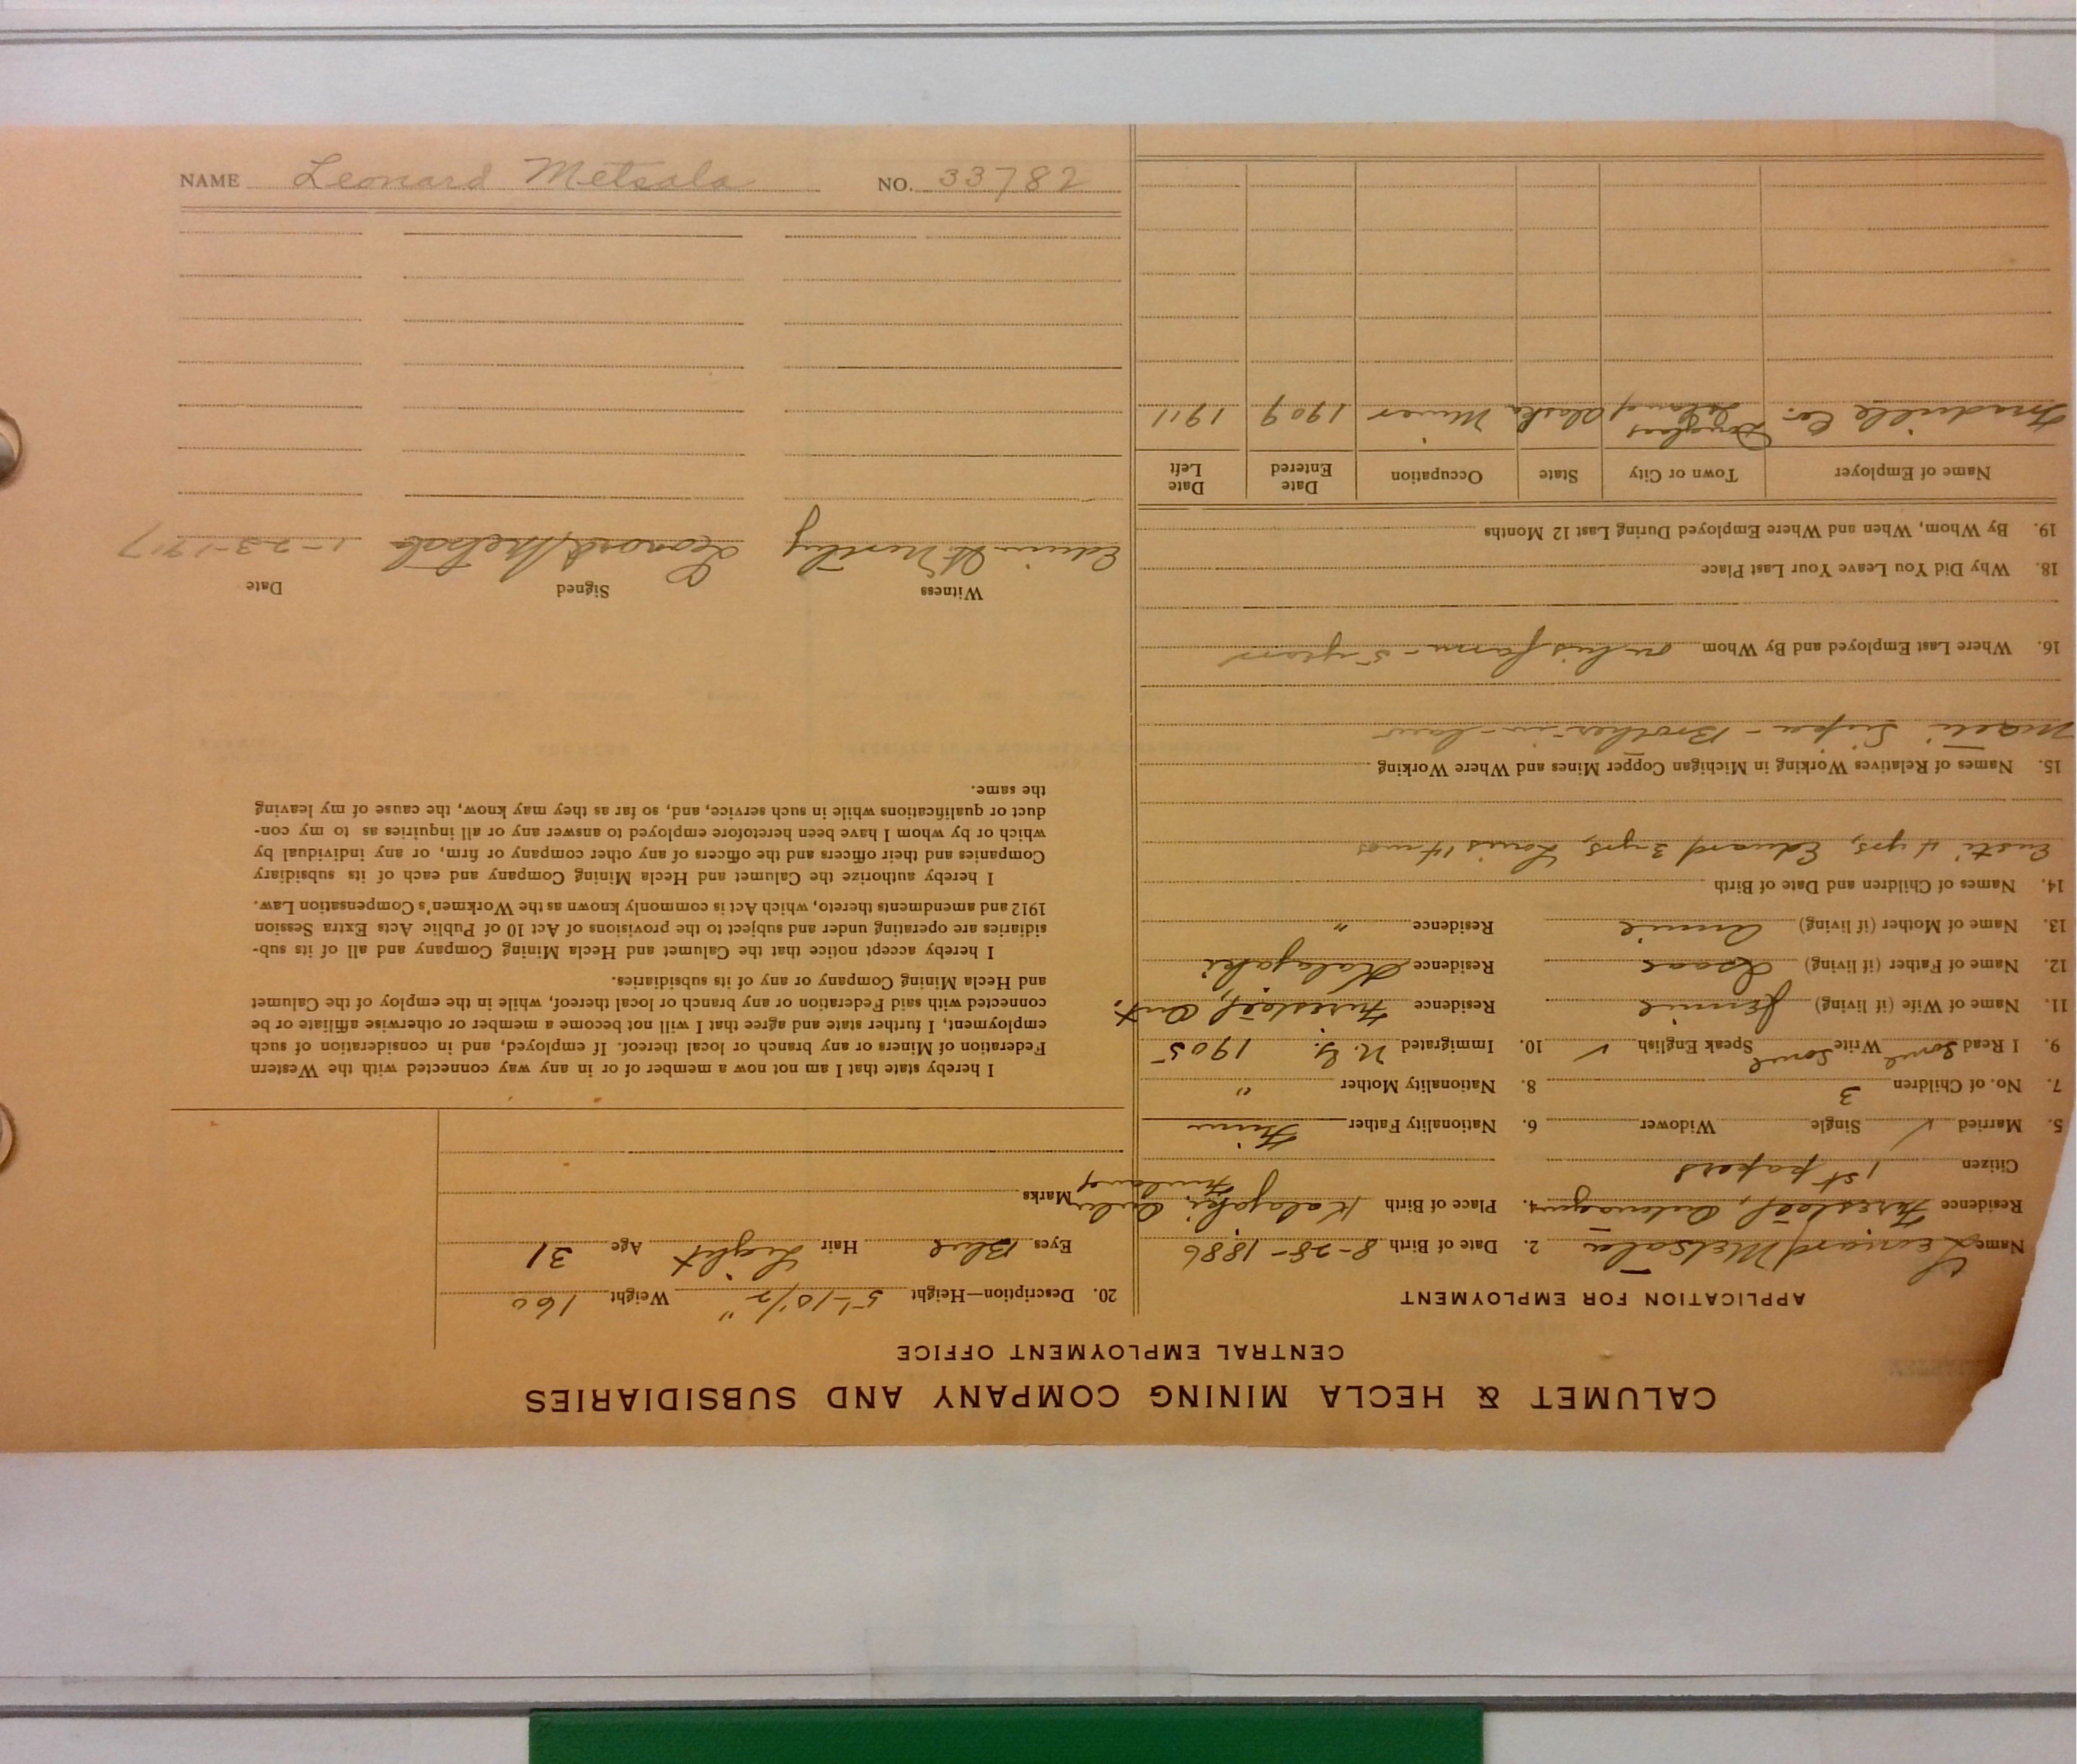 CALUMET & HECLA MINING COMPANY AND SUBSIDIARIES
CENTRAL EMPLOYMENT OFFICE
APPLICATION FOR EMPLOYMENT
Name Leonard Metsala 2. Date of Birth 8-28-1886
Residence Ontonagon 4. Place of Birth Kalajoki Finland
Citizen 1st papers
5. Married ✓ Single Widower 6. Nationality Father Finn
7. No. of Children 3 8. Nationality Mother "
9. I Read some Write some Speak English ✓ 10. Immigrated N.Y. 1905
11. Name of Wife (if living) Jennie Residence Ont.
12. Name of Father (if living) Isaac Residence Kalajoki
13. Name of Mother (if living) Annie Residence "
14. Names of Children and Date of Birth
4 yrs, Edward 3 yrs, Louis 14 mos
15. Names of Relatives Working in Michigan Copper Mines and Where Working
- Brother-in-law
16. Where Last Employed and By Whom on his farm - 5 years
18. Why Did You Leave Your Last Place
19. By Whom, When and Where Employed During Last 12 Months
Name of Employer Town or City State Occupation Date Entered Date Left
Co. Douglas Island Alaska Miner 1909 1911
20. Description—Height 5'-10 1/2" Weight 160
Eyes Blue Hair Light Age 31
Marks
I hereby state that I am not now a member of or in any way connected with the Western
Federation of Miners or any branch or local thereof. If employed, and in consideration of such
employment, I further state and agree that I will not become a member or otherwise affiliate or be
connected with said Federation or any branch or local thereof, while in the employ of the Calumet
and Hecla Mining Company or any of its subsidiaries.
I hereby accept notice that the Calumet and Hecla Mining Company and all of its sub-
sidiaries are operating under and subject to the provisions of Act 10 of Public Acts Extra Session
1912 and amendments thereto, which Act is commonly known as the Workmen's Compensation Law.
I hereby authorize the Calumet and Hecla Mining Company and each of its subsidiary
Companies and their officers and the officers of any other company or firm, or any individual by
which or by whom I have been heretofore employed to answer any or all inquiries as to my con-
duct or qualifications while in such service, and, so far as they may know, the cause of my leaving
the same.
Witness Signed Date
Edwin Leonard Metsala 1-23-1917
NAME Leonard Metsala NO. 33782